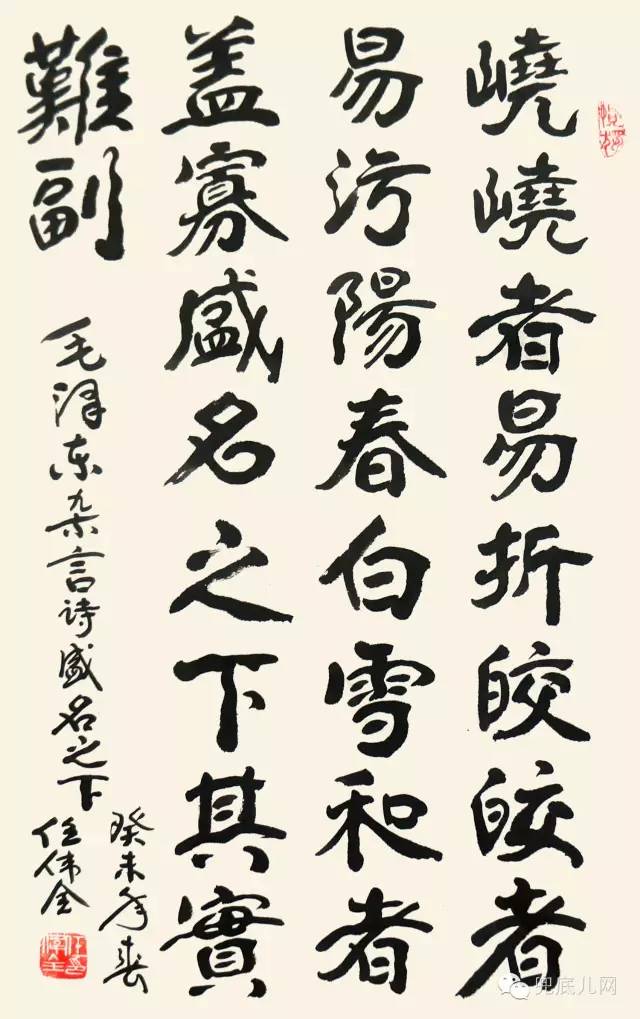 嶢嶢者易折皎皎者
易污陽春白雪和者
盖寡盛名之下其實
難副
毛泽东杂言诗盛名之下
癸未年春
任伟全
兜底儿网